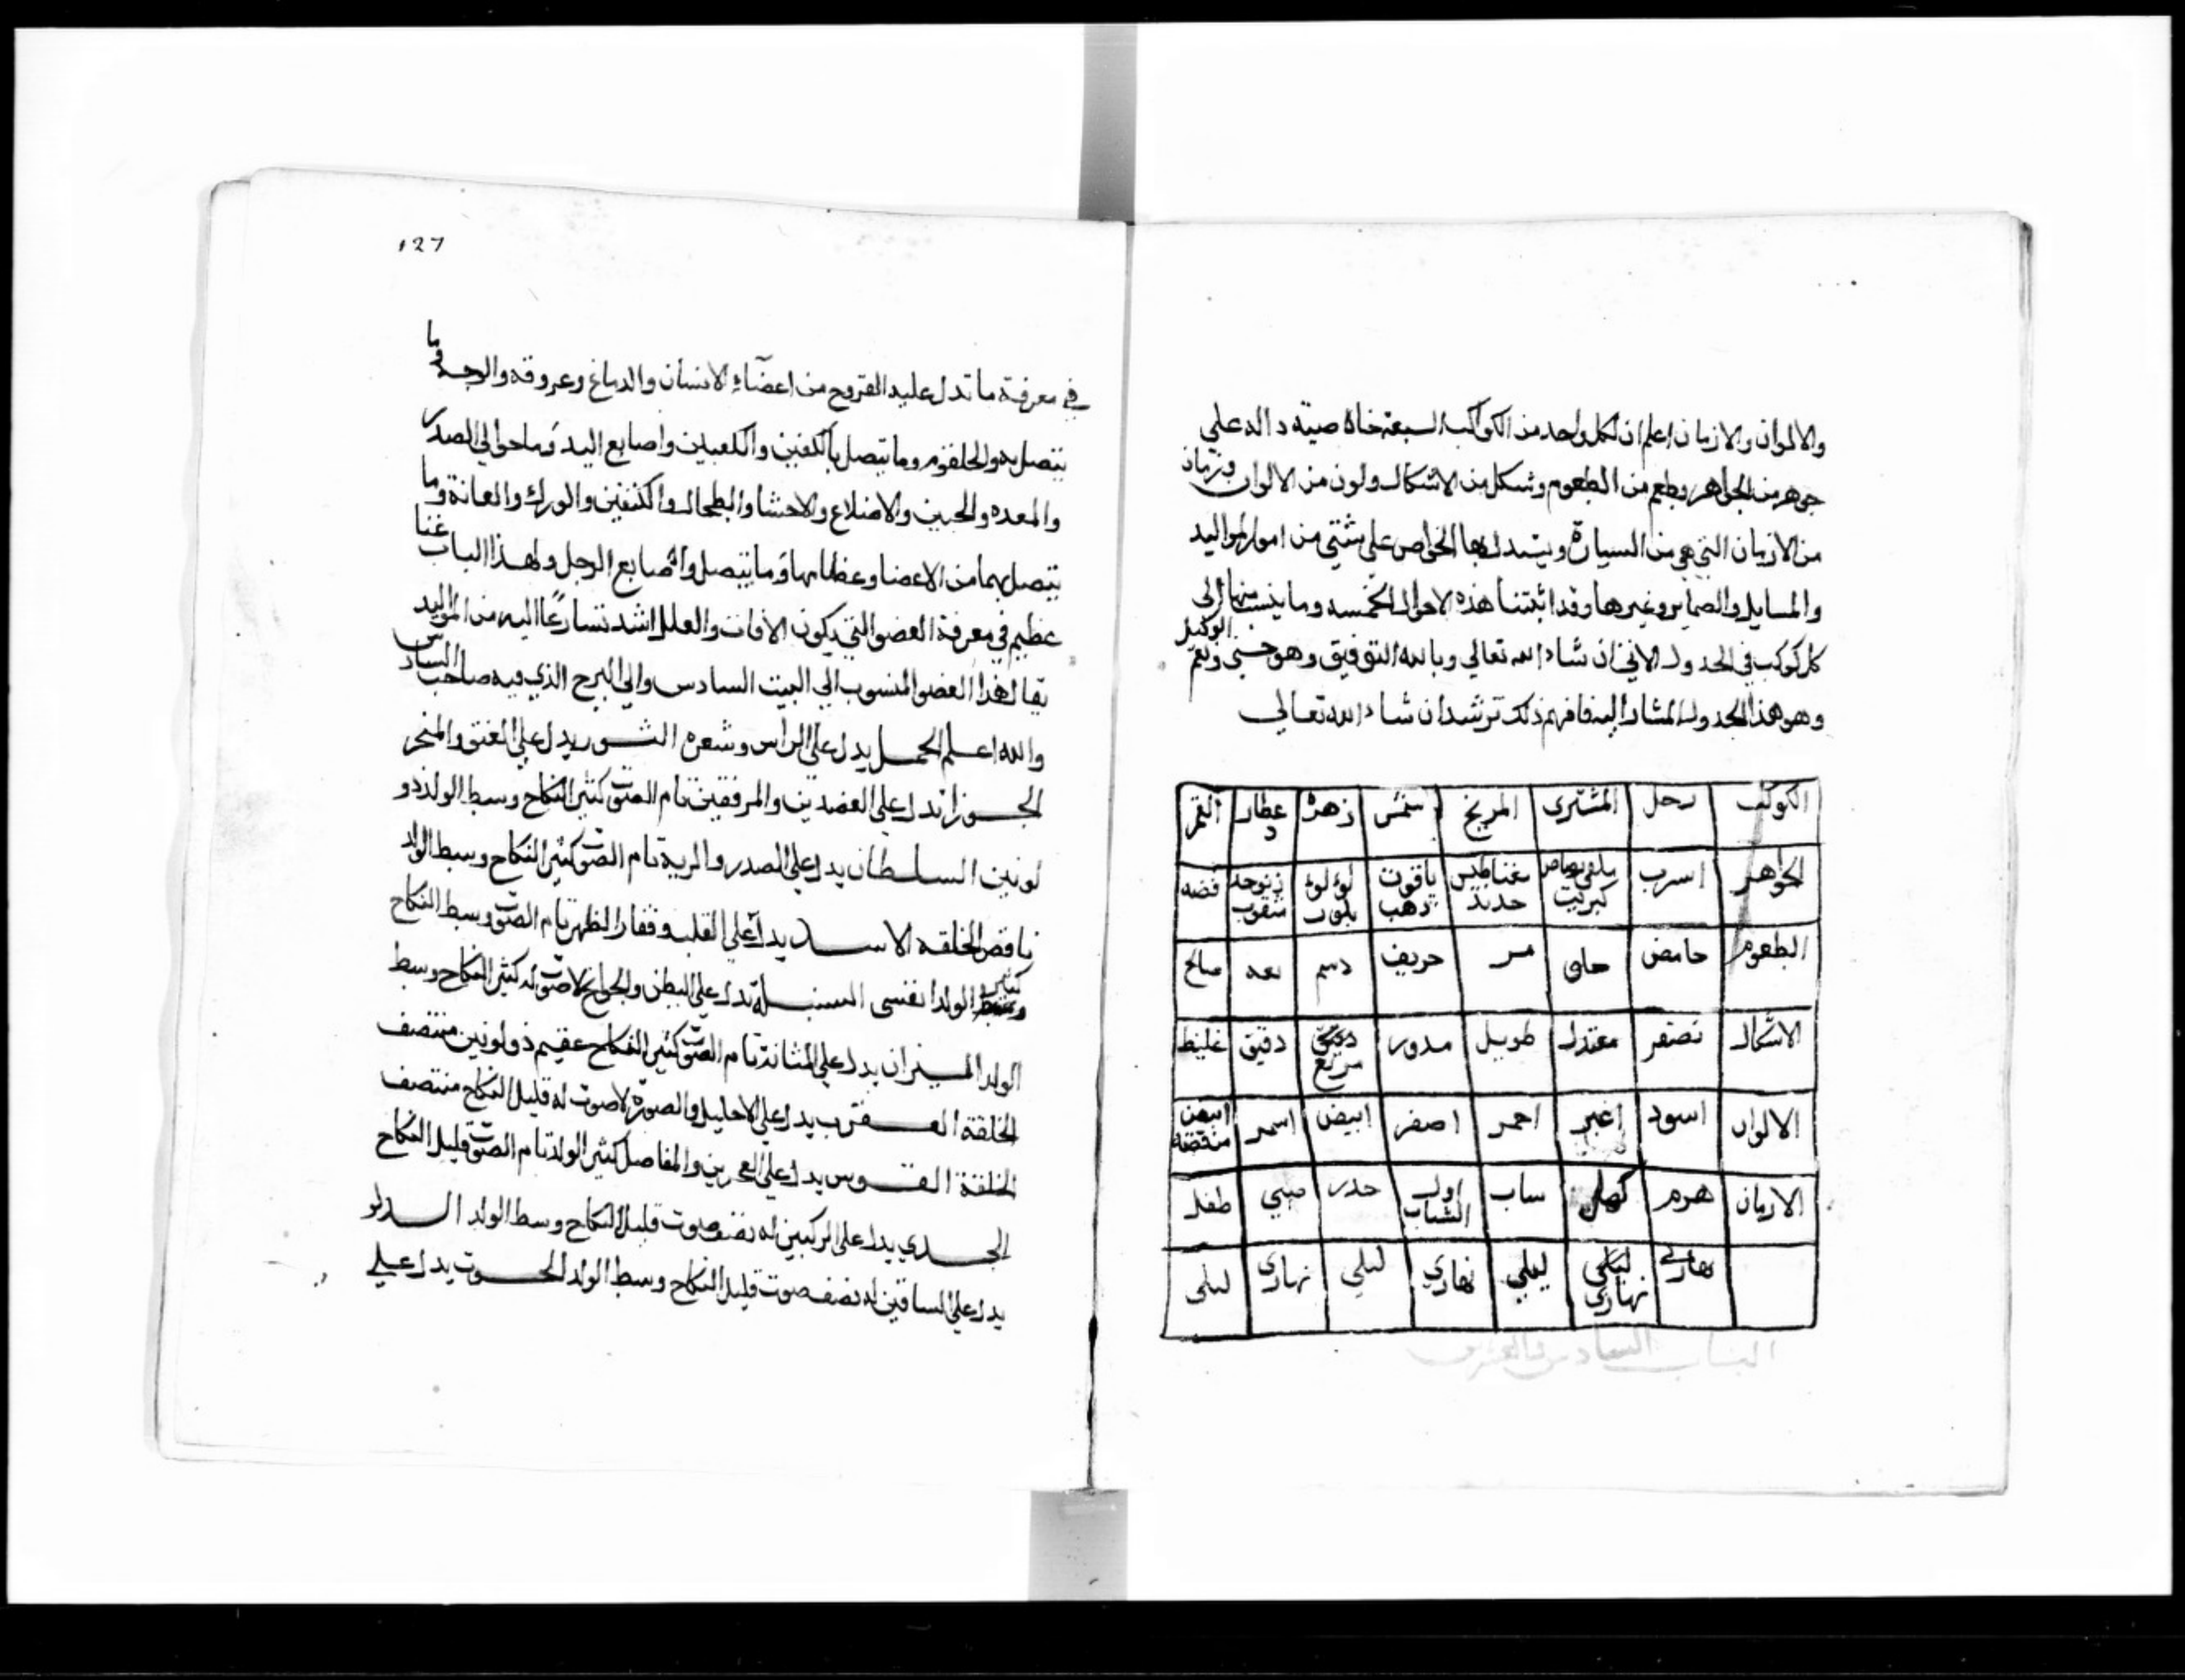 والالوان والازمان اعلم ان لكل واحد من الكواكب السبعة خاصية دالة على
جوهر من الجواهر وطعم من الطعوم وشكل من الاشكال ولون من الالوان وزمان
من الازمان التي هي من السيارة ويستدل بها الخواص على شتي من امور المواليد
والمسايل والضماير وغيرها وقد اثبتنا هذه الاحوال الخمسه وما ينسب منها الى
كل كوكب في الجدول الاتي ان شاء الله تعالي وبالله التوفيق وهو حسبي ونعم الوكيل
وهو هذا الجدول المشار اليه فافهم ذلك ترشد ان شاء الله تعالي
الكوكب زحل المشترى المريخ شمس زهرة عطارد القمر
الجواهر اسرب كبريت مغناطيس حديد ياقوت ذهب لؤلؤ بلور فضه
الطعوم حامض حلو مر حريف دسم مالح
الاشكال معتدل طويل مدور مربع دقيق غليظ
الالوان اسود اغبر احمر اصفر ابيض اسمر ابيض
الازمان هرم كهل ساب اول الشباب حدر صبي طفل
نهاري ليلي نهاري ليلي نهاري ليلي نهاري ليلى
الباب السادس والعشرون
127
في معرفة ما تدل عليه البروج من اعضاء الانسان والدماغ وعروقه والوجه وما
يتصل به والحلقوم وما يتصل بالكفين والكعبين واصابع اليد وما حوالي الصدر
والمعده والجبين والاضلاع والاحشا والطحال والكتفين والورك والعانة وما
يتصل بهما من الاعضا وعظامها وما يتصل واصابع الرجل ولهذا الباب غنا
عظيم في معرفة العضو التي يكون الافات والعلل اشد تسارعا اليه من المواليد
يقال لهذا العضو المنسوب الي البيت السادس والي البرج الذي فيه صاحب السادس
والله اعلم الحمل يدل على الراس وشعره الثور يدل علي العنق والمنحر
الجوزا تدل علي العضدين والمرفقين تام الصوت كثير النكاح وسط الولد ذو
لونين السلطان يدل علي الصدر والرية تام الصوت كثير النكاح وسط الولد
ناقص الخلقه الاسد يدل علي القلب وفقار الظهر تام الصوت وسط النكاح
الولد السنبلة تدل علي البطن والجوانح لا صوت له كثير النكاح وسط
الولد الميزان يدل علي المثانة تام الصوت كثير النكاح عقيم ذو لونين منتصف
الخلقة العقرب يدل علي الاحليل والصورة لا صوت له قليل النكاح منتصف
الخلقة القوس يدل علي والمفاصل كثير الولد تام الصوت قليل النكاح
الجدي يدل علي الركبين له نصف صوت قليل النكاح وسط الولد الدلو
يدل علي الساقين له نصف صوت قليل النكاح وسط الولد الحوت يدل علي